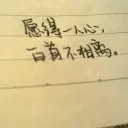 愿得一人心，
百首不相离。